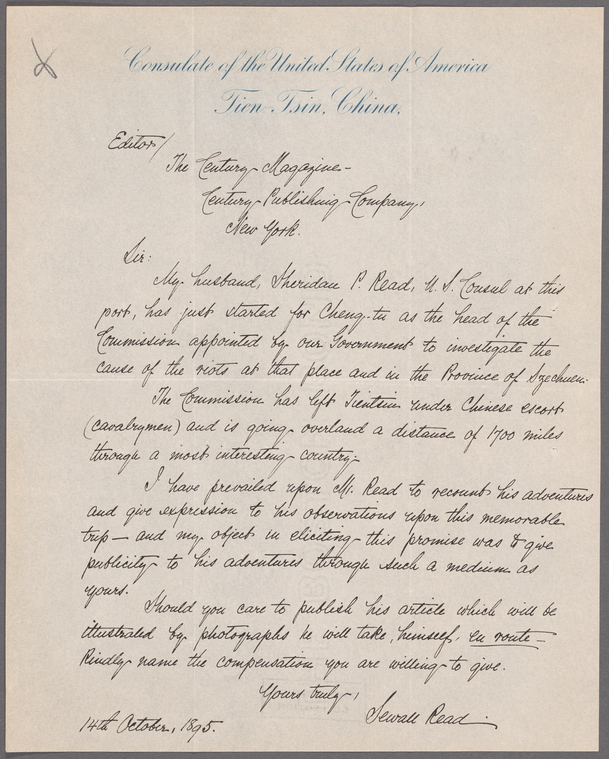 Consulate of the United States of America
Tien-Tsin, China,
Editor/
The Century Magazine—
Century Publishing Company,
New York.
Sir:
My husband, Sheridan P. Read, U. S. Consul at this
port, has just started for Cheng-tu as the head of the
Commission appointed by our Government to investigate the
cause of the riots at that place and in the Province of Szechuen.
The Commission has left Tientsin under Chinese escort
(cavalrymen) and is going overland a distance of 1700 miles
through a most interesting country.
I have prevailed upon Mr. Read to recount his adventures
and give expression to his observations upon this memorable
trip — and my object in eliciting this promise was to give
publicity to his adventures through such a medium as
yours.
Should you care to publish his article which will be
illustrated by photographs he will take, himself, en route—
Kindly name the compensation you are willing to give.
Yours truly,
Sewall Read.
14th October, 1895.